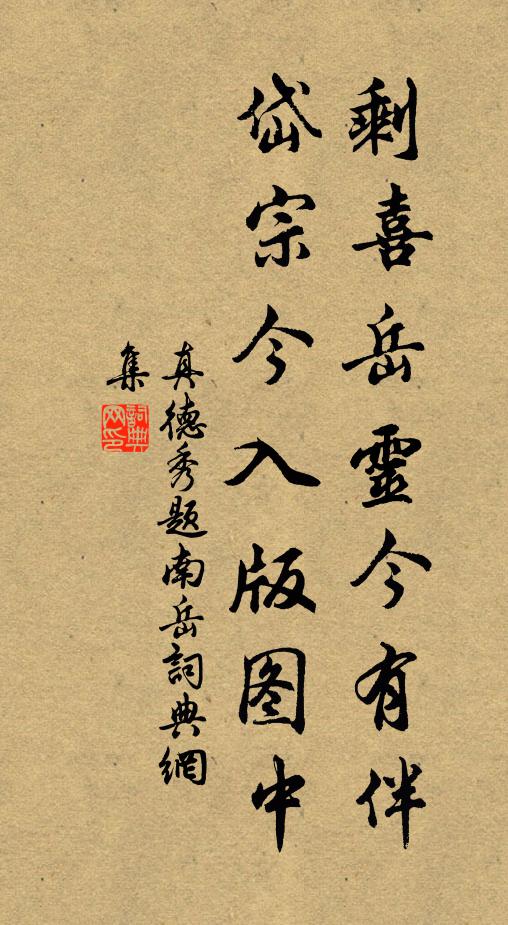 剩喜岳靈今有伴
岱宗今入版图中
真德秀题南岳詞典網
集
詞典网印